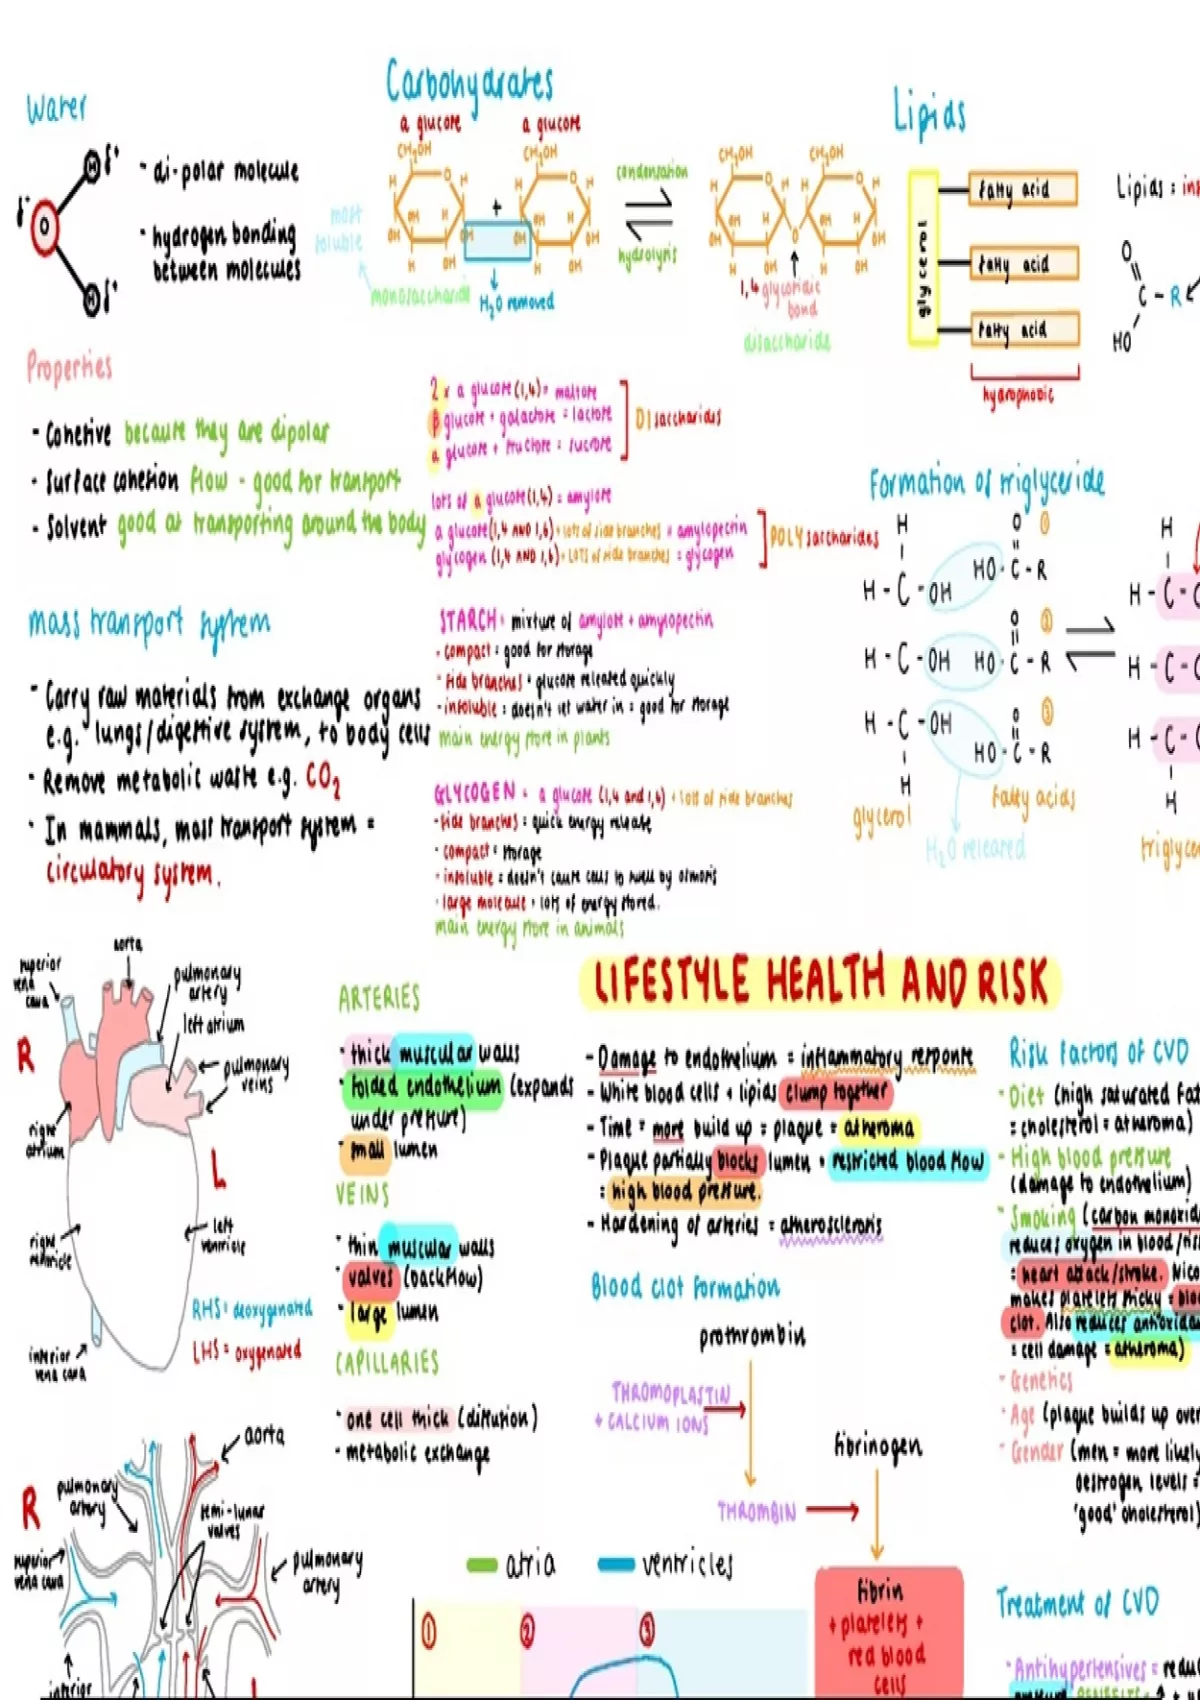 Water
δ+
H
δ+
O
H
δ+
- di-polar molecule
- hydrogen bonding
between molecules
Properties
- Cohesive because they are dipolar
- Surface cohesion flow - good for transport
- Solvent good at transporting around the body
mass transport system
- Carry raw materials from exchange organs
e.g. lungs/digestive system, to body cells
- Remove metabolic waste e.g. CO2
- In mammals, mass transport system =
circulatory system.
Carbohydrates
a glucose
a glucose
CH2OH
CH2OH
+
most
soluble
monosaccharide
H2O removed
condensation
hydrolysis
CH2OH
CH2OH
1,4 glycosidic
bond
disaccharide
2 x a glucose (1,4) = maltose
β glucose + galactose = lactose
a glucose + fructose = sucrose
DIsaccharides
lots of a glucose (1,4) = amylose
a glucose (1,4 AND 1,6) + lots of side branches = amylopectin
glycogen (1,4 AND 1,6) + LOTS of side branches = glycogen
POLYsaccharides
STARCH = mixture of amylose + amylopectin
- compact = good for storage
- side branches = glucose released quickly
- insoluble = doesn't let water in = good for storage
main energy store in plants
GLYCOGEN = a glucose (1,4 and 1,6) + lots of side branches
- side branches = quick energy release
- compact = storage
- insoluble = doesn't cause cells to swell by osmosis
- large molecule = lots of energy stored.
main energy store in animals
Lipids
glycerol
fatty acid
fatty acid
fatty acid
hydrophobic
Lipids = ins
O
C - R
HO
Formation of triglyceride
H
H - C - OH
H - C - OH
H - C - OH
H
O
HO - C - R
1
O
HO - C - R
2
O
HO - C - R
3
glycerol
fatty acids
H2O released
H
H - C -
H - C -
H - C -
H
triglyce
superior
vena
cava
aorta
pulmonary
artery
left atrium
pulmonary
veins
R
right
atrium
L
right
ventricle
left
ventricle
RHS = deoxygenated
LHS = oxygenated
inferior
vena cava
ARTERIES
- thick muscular walls
- folded endothelium (expands
under pressure)
- small lumen
VEINS
- thin muscular walls
- valves (backflow)
- large lumen
CAPILLARIES
- one cell thick (diffusion)
- metabolic exchange
LIFESTYLE HEALTH AND RISK
- Damage to endothelium = inflammatory response
- White blood cells + lipids clump together
- Time = more build up = plaque = atheroma
- Plaque partially blocks lumen = restricted blood flow
= high blood pressure.
- Hardening of arteries = atherosclerosis
Blood clot formation
prothrombin
THROMOPLASTIN
+ CALCIUM IONS
fibrinogen
THROMBIN
fibrin
+ platelets +
red blood
cells
Risk factors of CVD
- Diet (high saturated fat
= cholesterol = atheroma)
- High blood pressure
(damage to endothelium)
- Smoking (carbon monoxid
reduces oxygen in blood/tiss
= heart attack/stroke. Nico
makes platelets sticky = bloo
clot. Also reduces antioxidan
= cell damage = atheroma)
- Genetics
- Age (plaque builds up over
- Gender (men = more likely
oestrogen levels =
'good' cholesterol)
Treatment of CVD
- Antihypertensives = reduc
pressure BENEFITS =
R
pulmonary
artery
aorta
semi-lunar
valves
superior
vena cava
pulmonary
artery
inferior
L
atria
ventricles
1
2
3